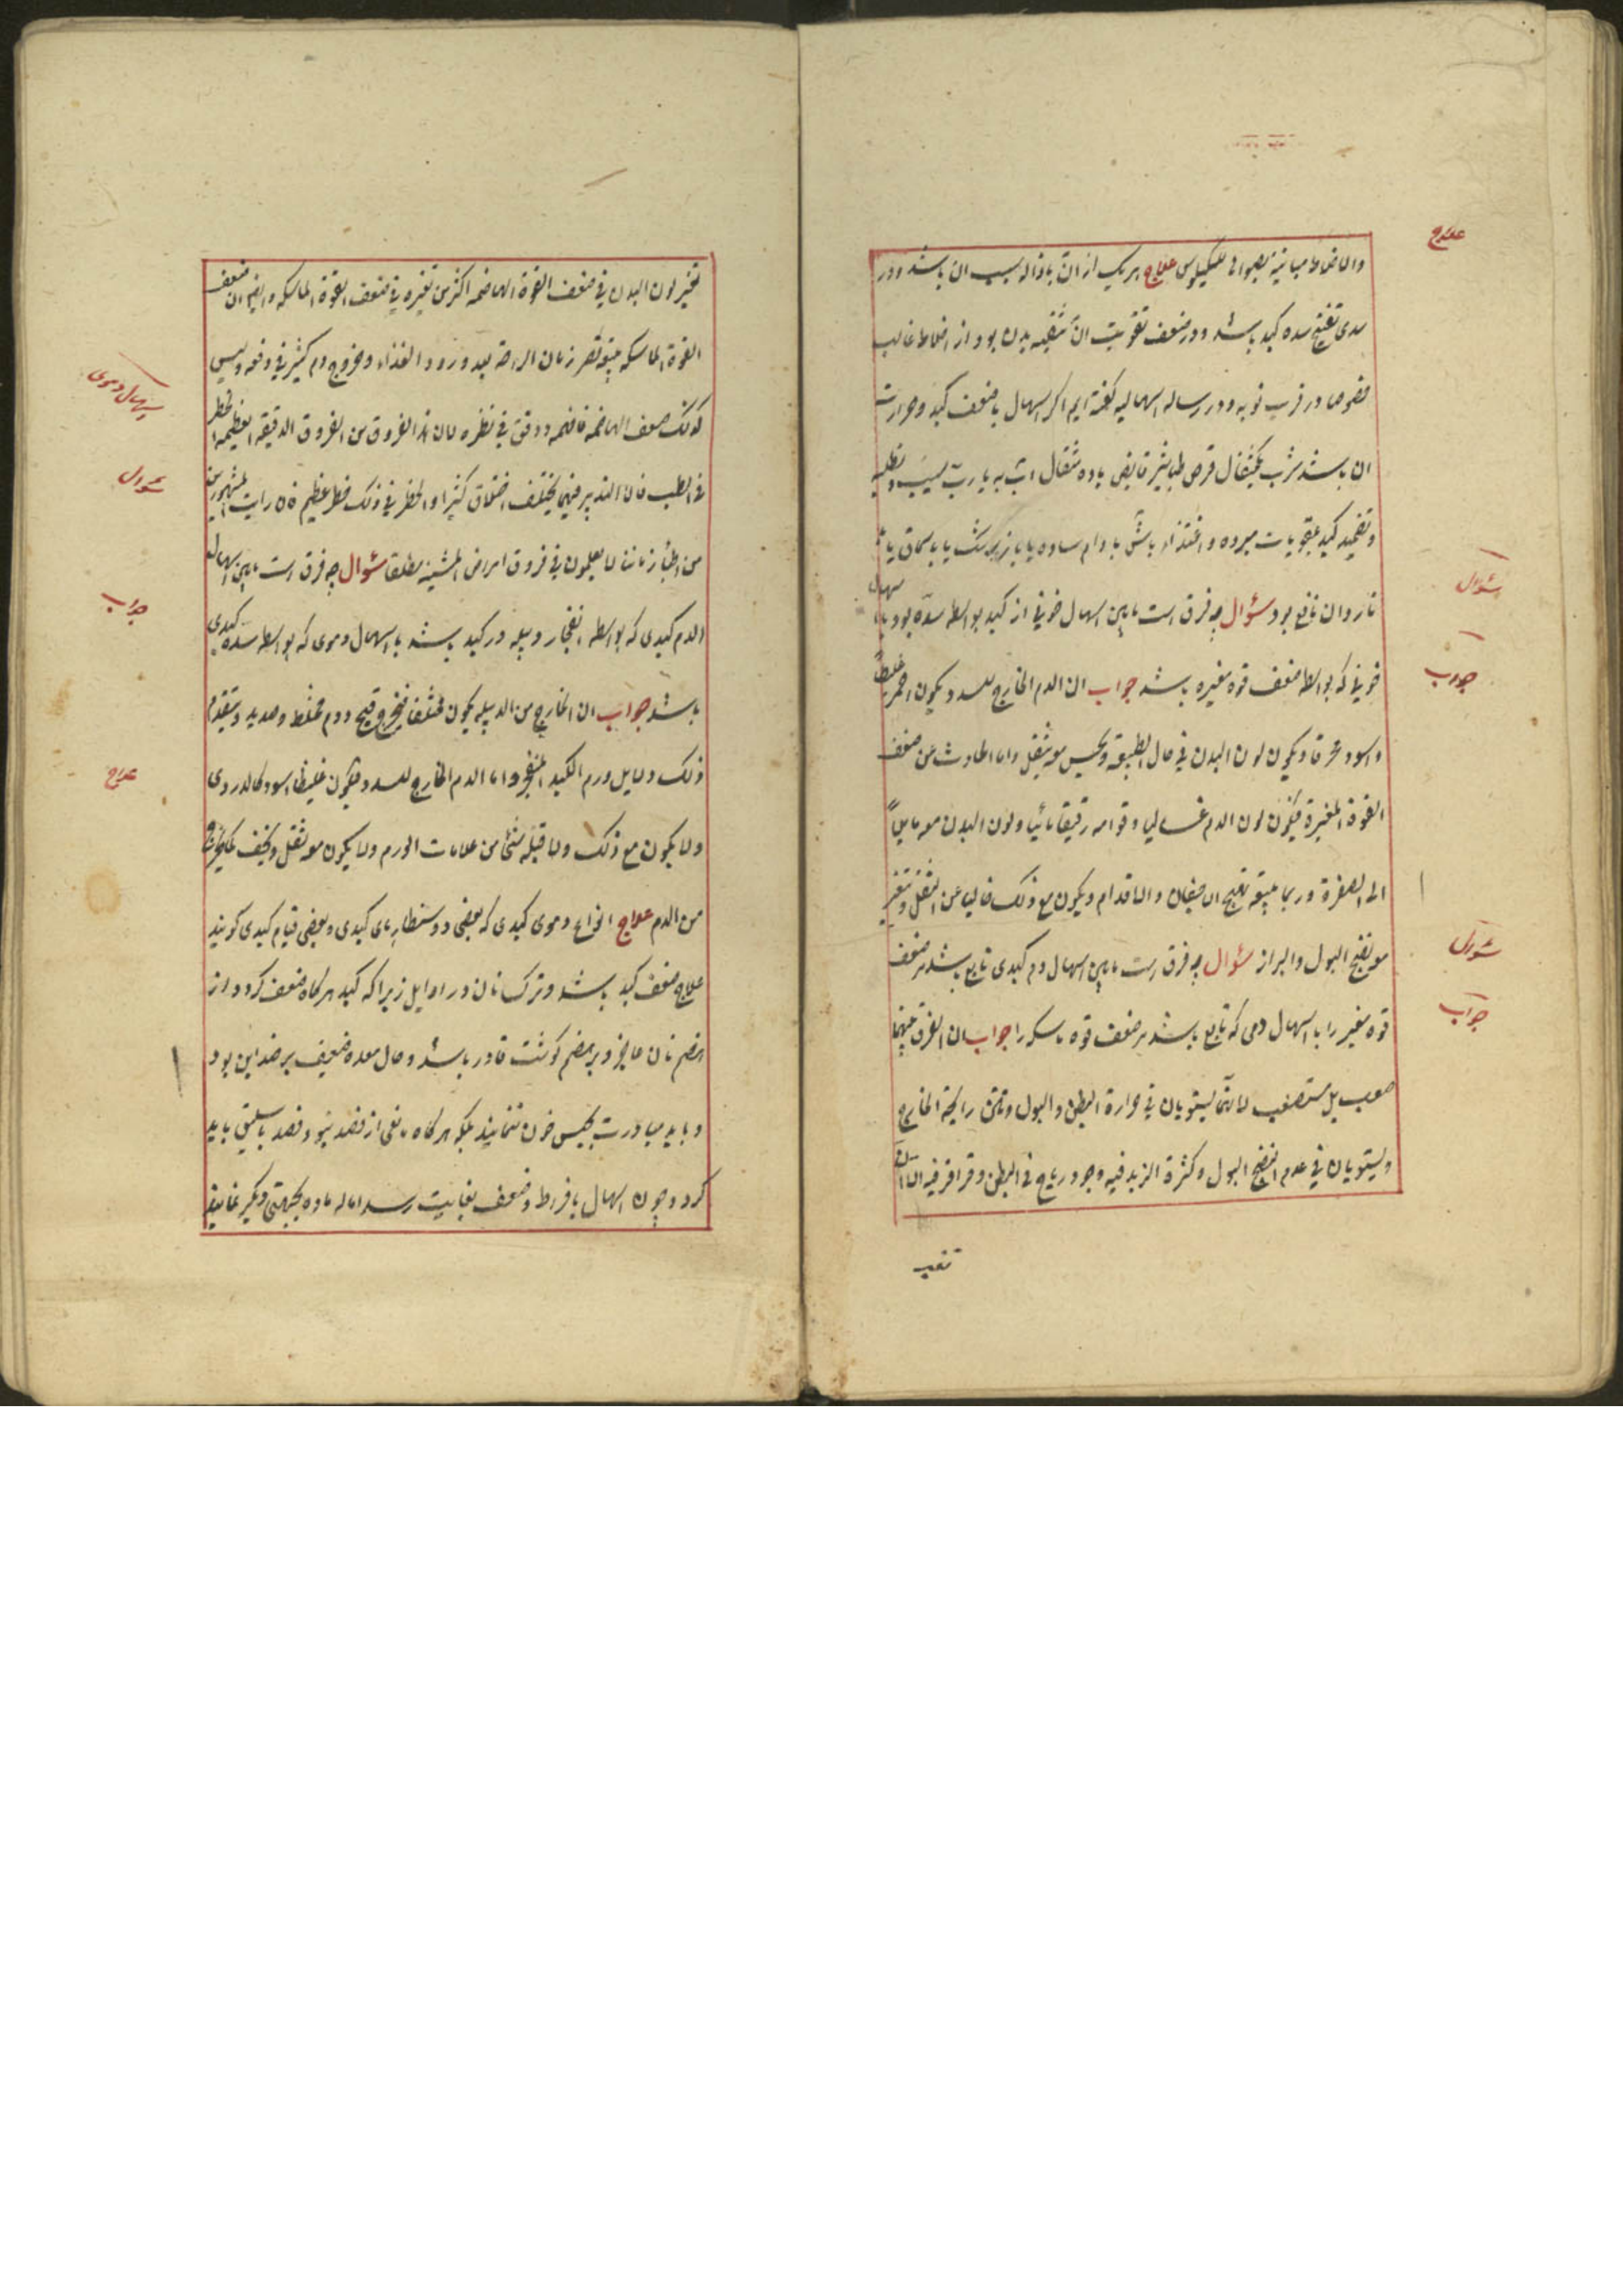 علاج
والاخلاط مباینة بصواله للکیلوس علاج هر یک از ان بازاله سبب ان باشد ودر
سدی تفتیح سده کبد باشد ودر ضعف تقویت ان تنقیه بدن بود از اخلاط غالب
خصوصا در قرب نوبه ودر رساله اسهالیه گفته ایم اگر اسهال با ضعف کبد وحرارت
ان باشد شرب یکمثقال قرص طباشیر قابض با ده مثقال اب به یا رب سیب
وتضمید کبد بمقویات مبرده واغتذا باش بادام ساده یا با زرشک یا با سماق یا
ناردان نافع بود سؤال چه فرق است مابین اسهال خونی از کبد بواسطه سده بود
سؤال
خونی که بواسطه ضعف قوه مغیره باشد جواب ان الدم الخارج للسدد یکون احمر غلیظا
جواب
واسود محرقا ویکون لون البدن فی حال الطبیعة ویحس معه بثقل واما الحادث من ضعف
القوة المغیرة فیکون لون الدم غسالی وقوامه رقیقا مائیا ولون البدن معه مایلاً
الی الصفرة وربما یتبعه تهیج الاجفان والاقدام ویکون مع ذلک خالیا عن الثقل
معه نضج البول والبراز سؤال چه فرق است مابین اسهال دم کبدی تابع باشد بر ضعف
سؤال
قوه مغیر را با اسهال دمی که تابع باشد بر ضعف قوه ماسکه را جواب ان الفرق بینهما
جواب
صعب بل مستصعب لانهما یستویان فی حرارة البطن والبول ونتن رایحة الخارج
ویستویان فی عدم النضج البول وکثرة الزبد فیه وجود ریاح فی البطن وقراقر فیه الا ان
تغیر
تغیر لون البدن فی ضعف القوة الهاضمه اکثر من تغیره فی ضعف القوة الماسکه وایضا ان ضعف
القوة الماسکه یتبعه قصر زمان الراحة بعد ورود الغذاء وخروج دم کثیر فی دفعه ولیس
اسهال دموی
کذلک ضعف الهاضمه فافهمه ودقق فی نظره لان هذا الفروق من الفروق الدقیقه العظیمه الخطر
فی الطب فان التدبیر فیهما یختلف اختلافا کثیرا والخطر فی ذلک خطر عظیم
سؤال
من اطباء زماننا لا یعلمون فی فروق امراض المشتبه مطلقا سؤال چه فرق است مابین اسهال
الدم کبدی که بواسطه انفجار دبیله در کبد باشد با اسهال دموی که بواسطه سده کبدی
جواب
باشد جواب ان الخارج من الدبیله یکون مختلفا فیخرج قیح ودم مختلط وصدید ویتقدم
ذلک دلایل ورم الکبد المنفجر واما الدم الخارج للسدد فیکون غلیظا اسود کالدردی
ولا یکون مع ذلک ولا قبله شئ من علامات الورم ولا یکون معه ثقل ویخف بما یخرج
من الدم علاج انواع دموی کبدی که بعضی دوسنطاریای کبدی وبعضی قیام کبدی کویند
علاج
علاج ضعف کبد باشد وترک نان در اوایل زیرا که کبد هرگاه ضعف گردد از
هضم نان عاجز وبر هضم گوشت قادر باشد وحال معده ضعیف بر ضد این بود
وباید مبادرت بحبس خون ننمایند بلکه هرگاه مانعی از فصد نبود فصد باسلیق باید
کرد وچون اسهال بافراط وضعف بغایت رسد اماله ماده بجهتی دیگر نمایند